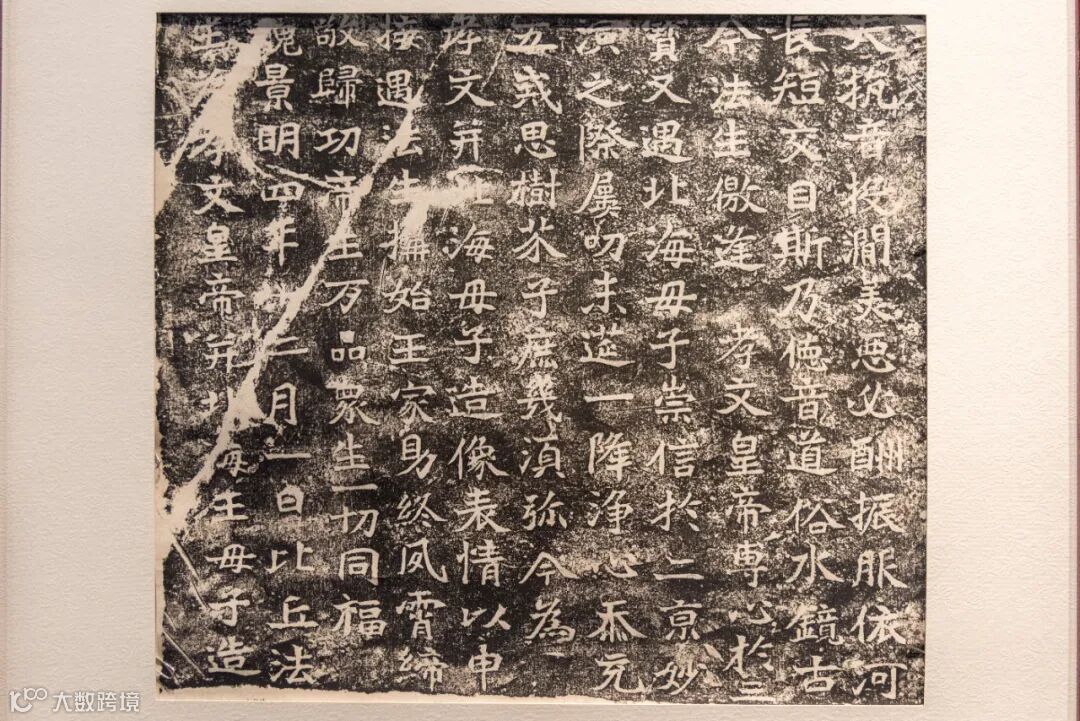 夫抗音投澗美惡必酬振服依河
長短交目斯乃德音道俗水鏡古
今法生儌逢 孝文皇帝専心於三
寶又遇北海母子崇信於二京妙
演之際屢叨末筵一降淨心忝充
五戒思樹芥子庶幾湏弥今為
孝文并北海母子造像表情以申
接遇法生構始王家助終夙霄締
敬歸功帝王万品眾生一切同福
魏景明四年十二月一日比丘法
生為孝文皇帝并北海王母子造
大数跨境